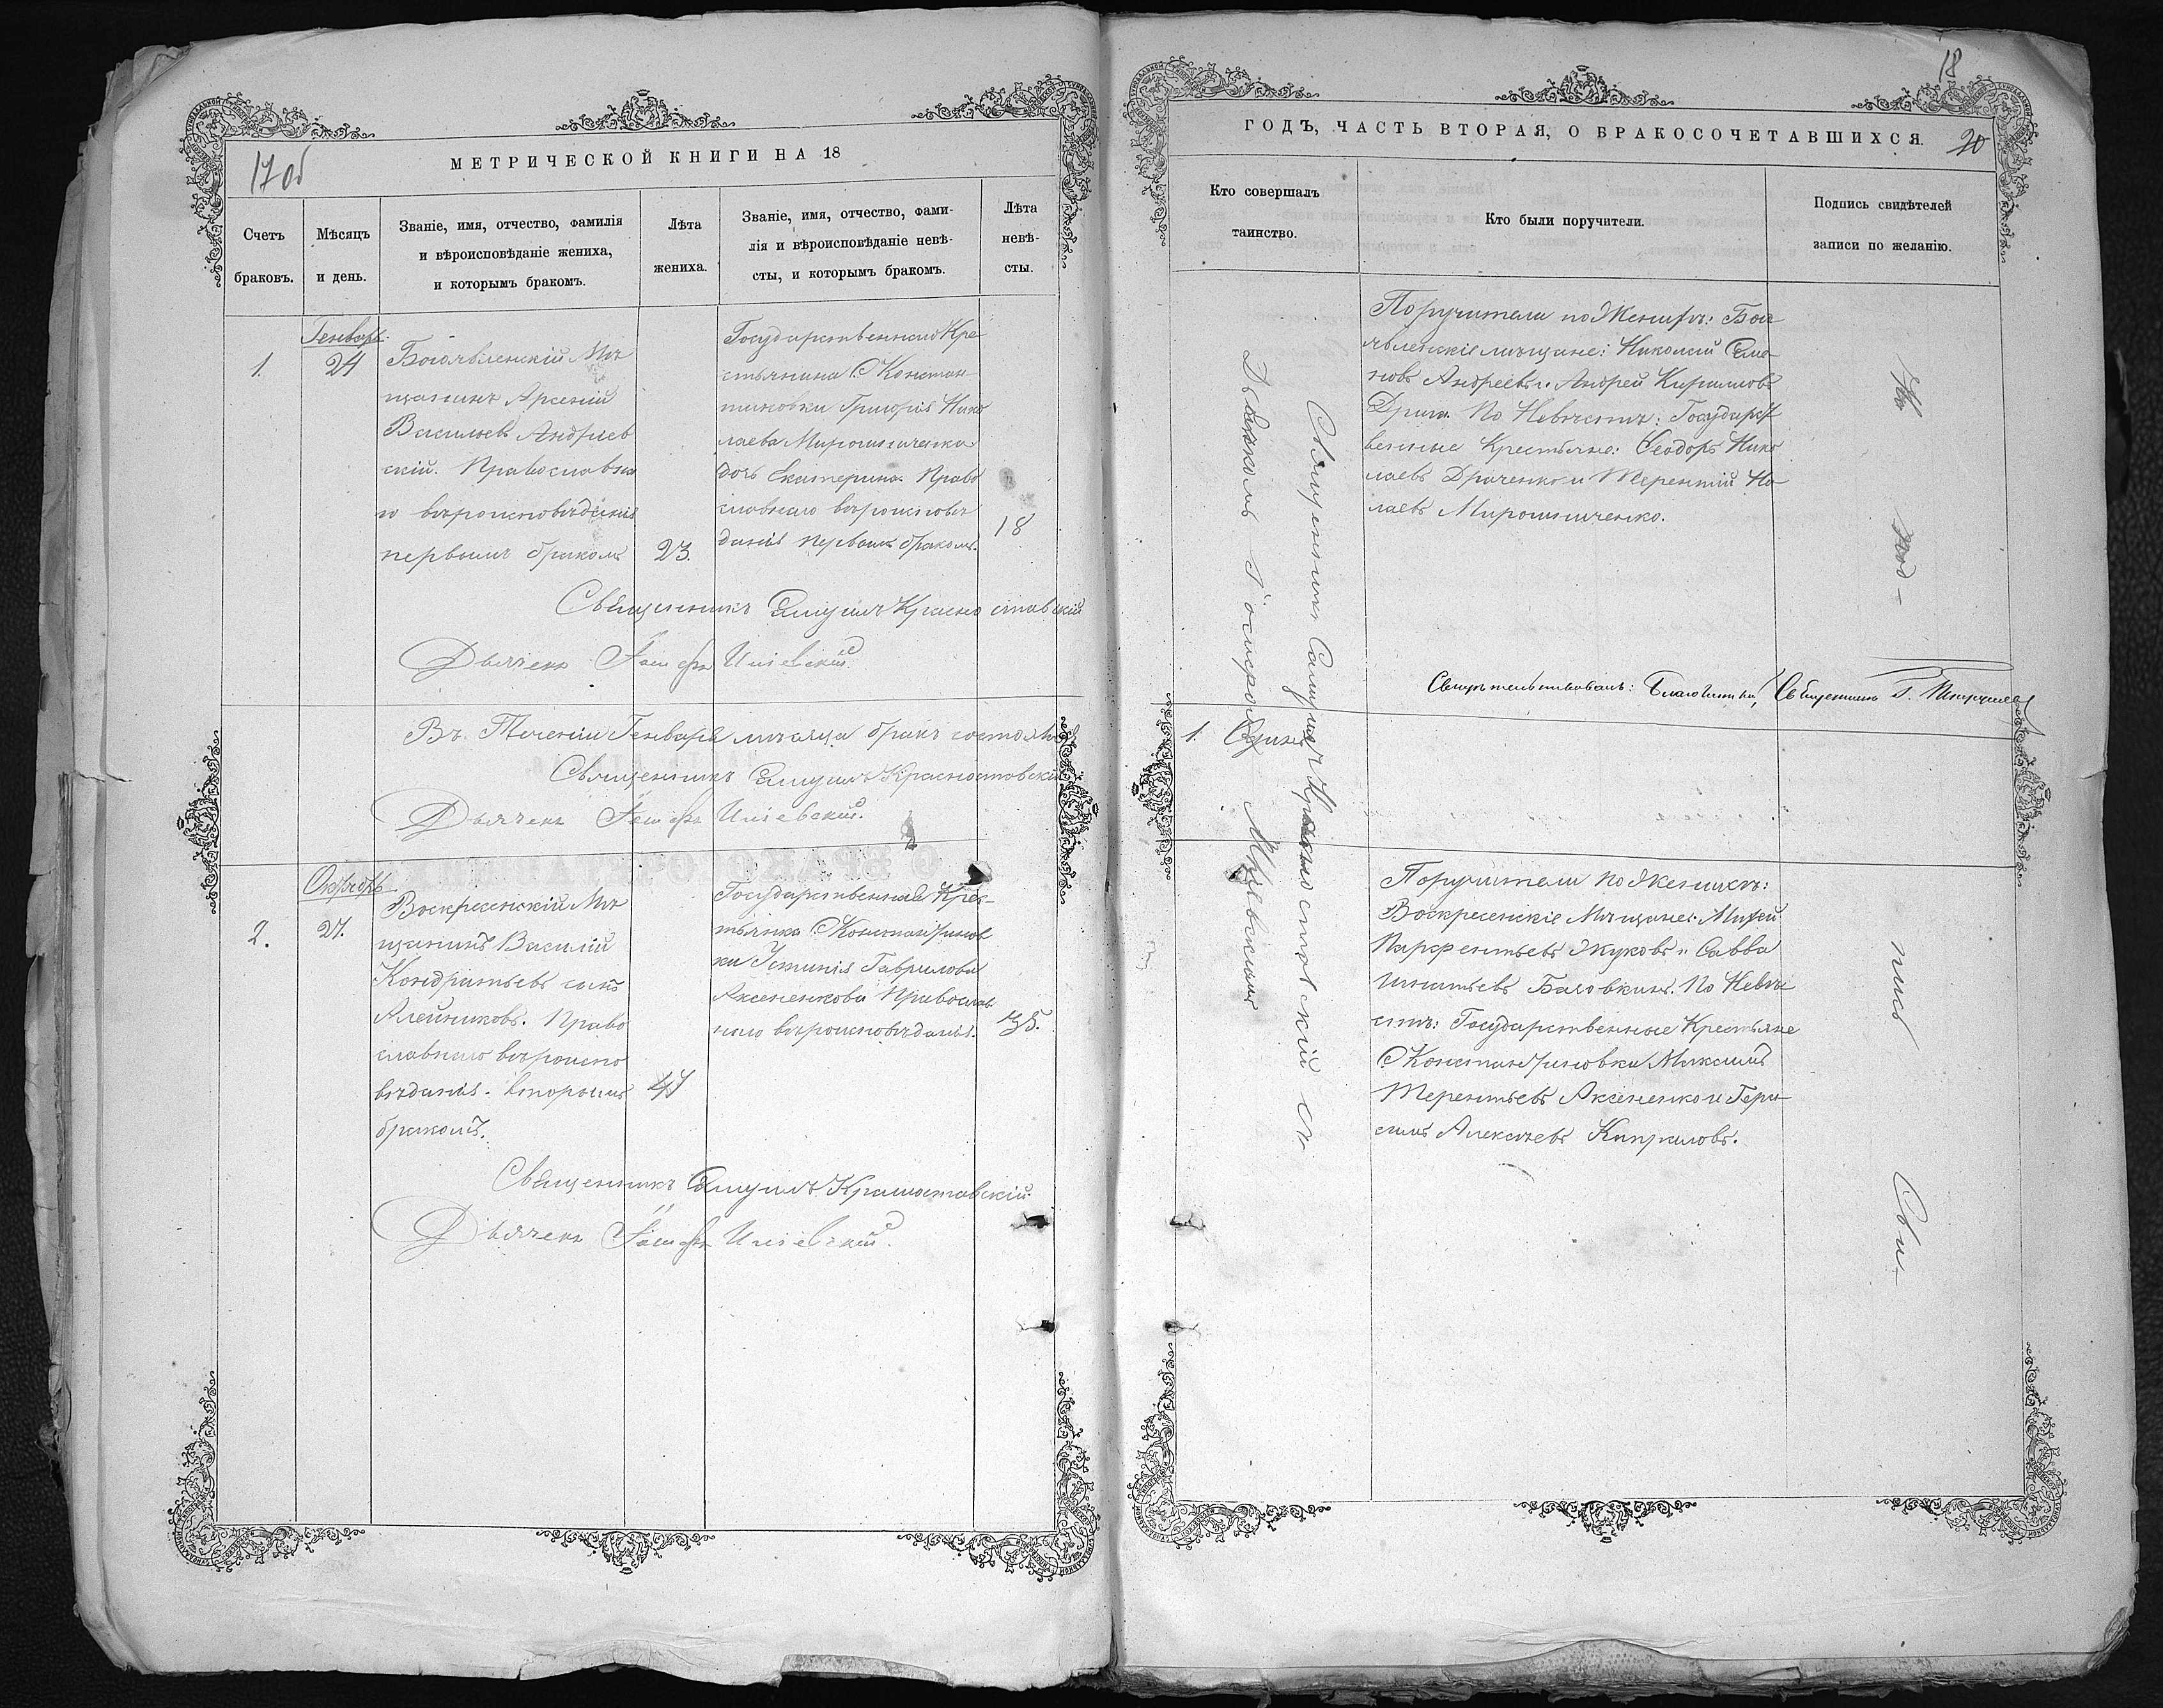 17 об
МЕТРИЧЕСКОЙ КНИГИ НА 18
Счетъ
браковъ.
Мѣсяцъ
и день.
Званіе, имя, отчество, фамилія
и вѣроисповѣданіе жениха,
и которымъ бракомъ.
Лѣта
жениха.
Званіе, имя, отчество, фами-
лія и вѣроисповѣданіе невѣ-
сты, и которымъ бракомъ.
Лѣта
невѣ-
сты.
1.
Генварь.
24
Богоявленскій Мѣ
щанинъ Арсеній
Васильевъ Андріев
скій. Православна
го вѣроисповѣданія
первымъ бракомъ
23.
Государственнаго Кре
стьянина С. Констан-
тиновки Григорія Нико
лаева Мирошниченка
дочь Екатерина. Право
славнаго вѣроисповѣ
данія первымъ бракомъ.
18
Священникъ Самуилъ Красноставскій
Дьячекъ Іосифъ
Въ Теченіи Генваря мѣсяца бракъ состоялся
Священникъ Самуилъ Красностовскій
Дьячекъ Іосифъ
2.
Октябрь
27.
Воскресенскій Мѣ
щанинъ Василій
Кондратьевъ сынъ
Алейниковъ. Право
славнаго вѣроиспо
вѣданія. вторымъ
бракомъ.
47
Государственная Крес-
тьянка С. Константинов
ки Іустинія Гаврилова
Аксененкова Православ
наго вѣроисповѣданія.
35.
Священникъ Самуилъ Красностовскій.
Дьячекъ Іосифъ
18
ГОДЪ, ЧАСТЬ ВТОРАЯ, О БРАКОСОЧЕТАВШИХСЯ.
20
Кто совершалъ
таинство.
Кто были поручители.
Подпись свидѣтелей
записи по желанію.
Священникъ Самуилъ Красностовскій съ
Дьячкомъ Іосифомъ
Поручители по Женихѣ: Бого
явленскіе мѣщане: Николай Семе
новъ Андреевъ и Андрей Кириловъ
По Невѣстѣ: Государст
венные Крестьяне: Ѳеодоръ Нико
лаевъ Драченко и Терентій Ни
лаевъ Мирошниченко.
Свидѣтельствовалъ: Благочинный, Священникъ Г.
1. Одинъ
Поручители по Женихѣ:
Воскресенскіе Мѣщане:
Парфентьевъ Жуковъ и Савва
Игнатьевъ По Невѣ
стѣ: Государственные Крестьяне
С. Константиновки Максимъ
Терентьевъ Аксененко и Гера
симъ Алексѣевъ Кириловъ.